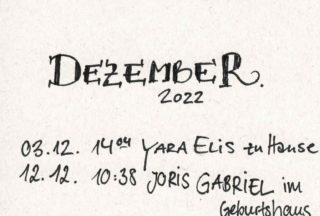 DEZEMBER.
2022
03.12. 14⁰⁴ YARA ELIS zu Hause
12.12. 10:38 JORIS GABRIEL im
Geburtshaus